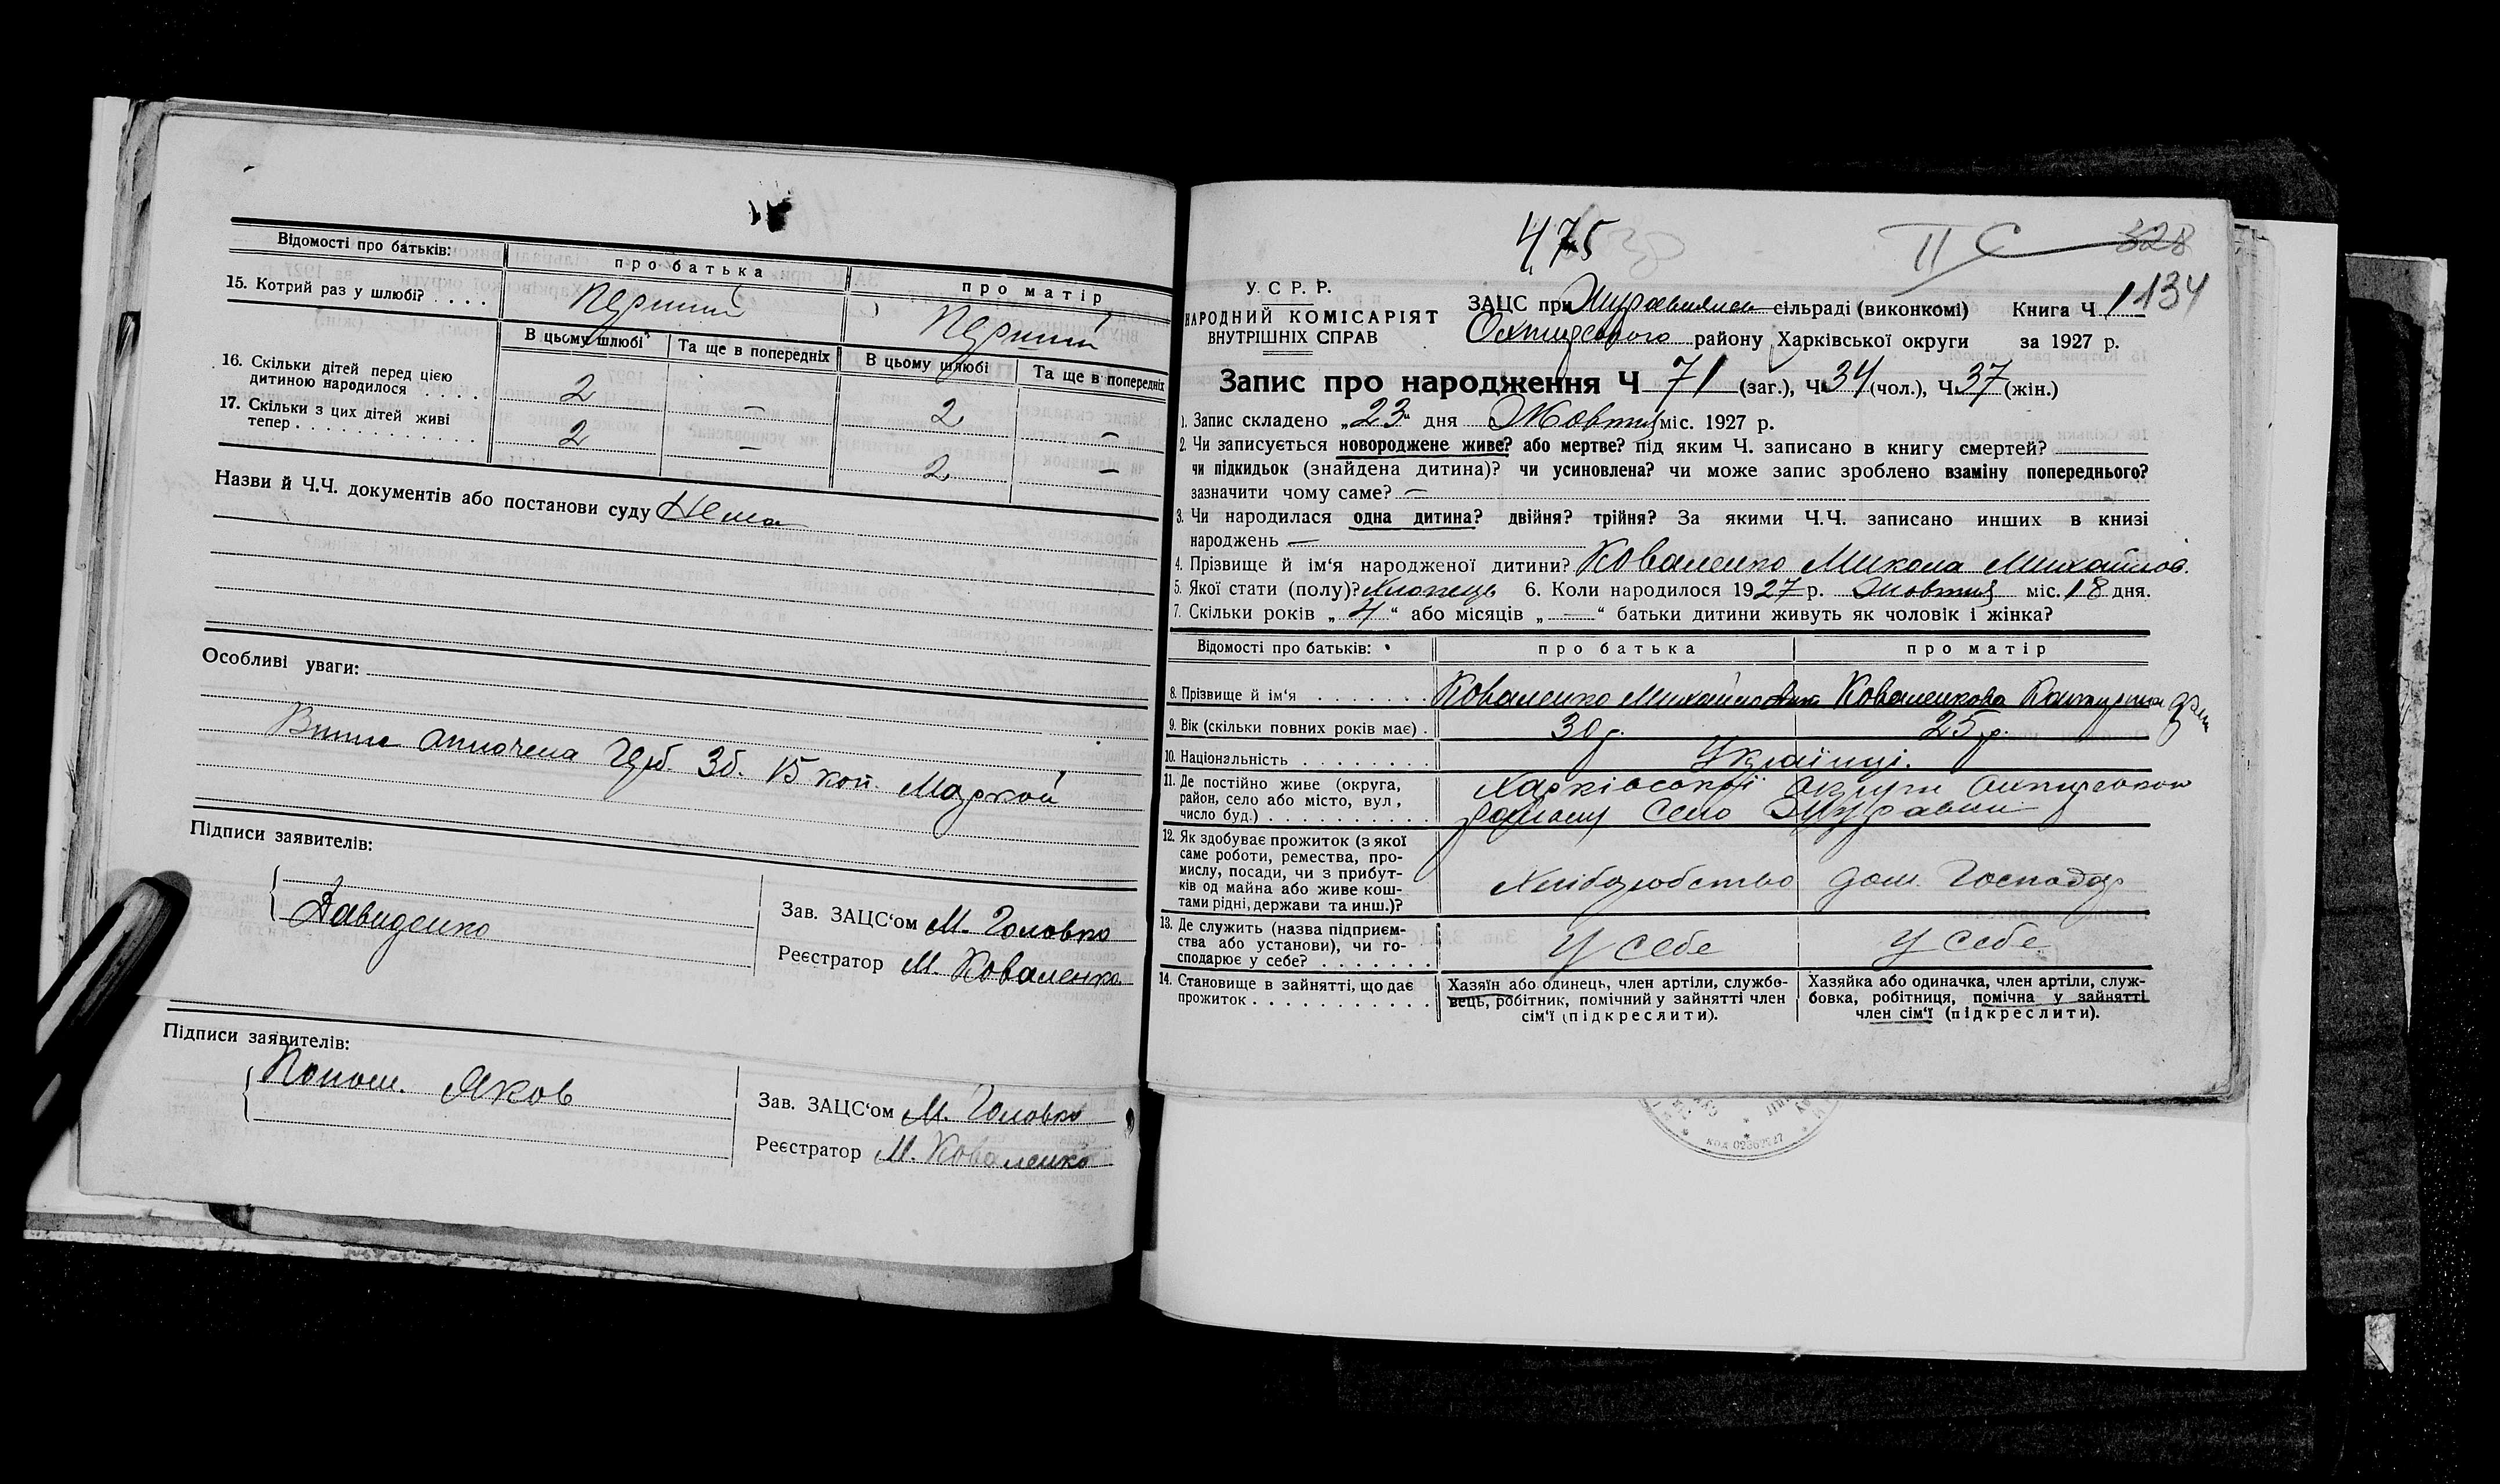 Відомості про батьків: про батька про матір
15. Котрий раз у шлюбі? . . . . Перший Перший
В цьому шлюбі Та ще в попередніх В цьому шлюбі Та ще в попередніх
16. Скільки дітей перед цією
дитиною народилося . . . . 2 — 2 —
17. Скільки з цих дітей живі
тепер . . . . . . . . . . . . 2 — 2 —
Назви й Ч.Ч. документів або постанови суду Нема
Особливі уваги:
зб. 15 коп. Маркой
Підписи заявителів:
Давиденко
Зав. ЗАЦС‘ом М. Головко
Реєстратор М. Коваленко
Підписи заявителів:
Яков
Зав. ЗАЦС‘ом М. Головко
Реєстратор М. Коваленко
475
II С 328
134
У. С. Р. Р.
НАРОДНИЙ КОМІСАРІЯТ
ВНУТРІШНІХ СПРАВ
ЗАЦС при сільраді (виконкомі) Книга Ч 1
району Харківської округи за 1927 р.
Запис про народження Ч 71 (заг.), Ч 34 (чол.), Ч 37 (жін.)
1. Запис складено „23“ дня Жовтня міс. 1927 р.
2. Чи записується новороджене живе? або мертве? під яким Ч. записано в книгу смертей?
чи підкидьок (знайдена дитина)? чи усиновлена? чи може запис зроблено взаміну попереднього?
зазначити чому саме? —
3. Чи народилася одна дитина? двійня? трійня? За якими Ч.Ч. записано инших в книзі
народжень —
4. Прізвище й ім‘я народженої дитини? Коваленко Микола Михайлов.
5. Якої стати (полу)? Хлопець 6. Коли народилося 1927 р. Жовтня міс. 18 дня.
7. Скільки років „4“ або місяців „—“ батьки дитини живуть як чоловік і жінка?
Відомості про батьків: про батька про матір
8. Прізвище й ім‘я . . . . . . . Коваленко Коваленкова
9. Вік (скільки повних років має) . 30 р. 25 р.
10. Національність . . . . . . . . Українці.
11. Де постійно живе (округа,
район, село або місто, вул,
число буд.) . . . . . . . . . . Харківської округи
району село Журавни
12. Як здобуває прожиток (з якої
саме роботи, ремества, про-
мислу, посади, чи з прибут-
ків од майна або живе кош-
тами рідні, держави та инш.)? Хліборобство дом. Господар
13. Де служить (назва підприєм-
ства або установи), чи го-
сподарює у себе? . . . . . . . У себе У себе
14. Становище в зайнятті, що дає
прожиток . . . . . . . . . . . .
Хазяїн або одинець, член артіли, службо-
вець, робітник, помічний у зайнятті член
сім‘ї (підкреслити).
Хазяйка або одиначка, член артіли, служ-
бовка, робітниця, помічна у зайнятті
член сім‘ї (підкреслити).